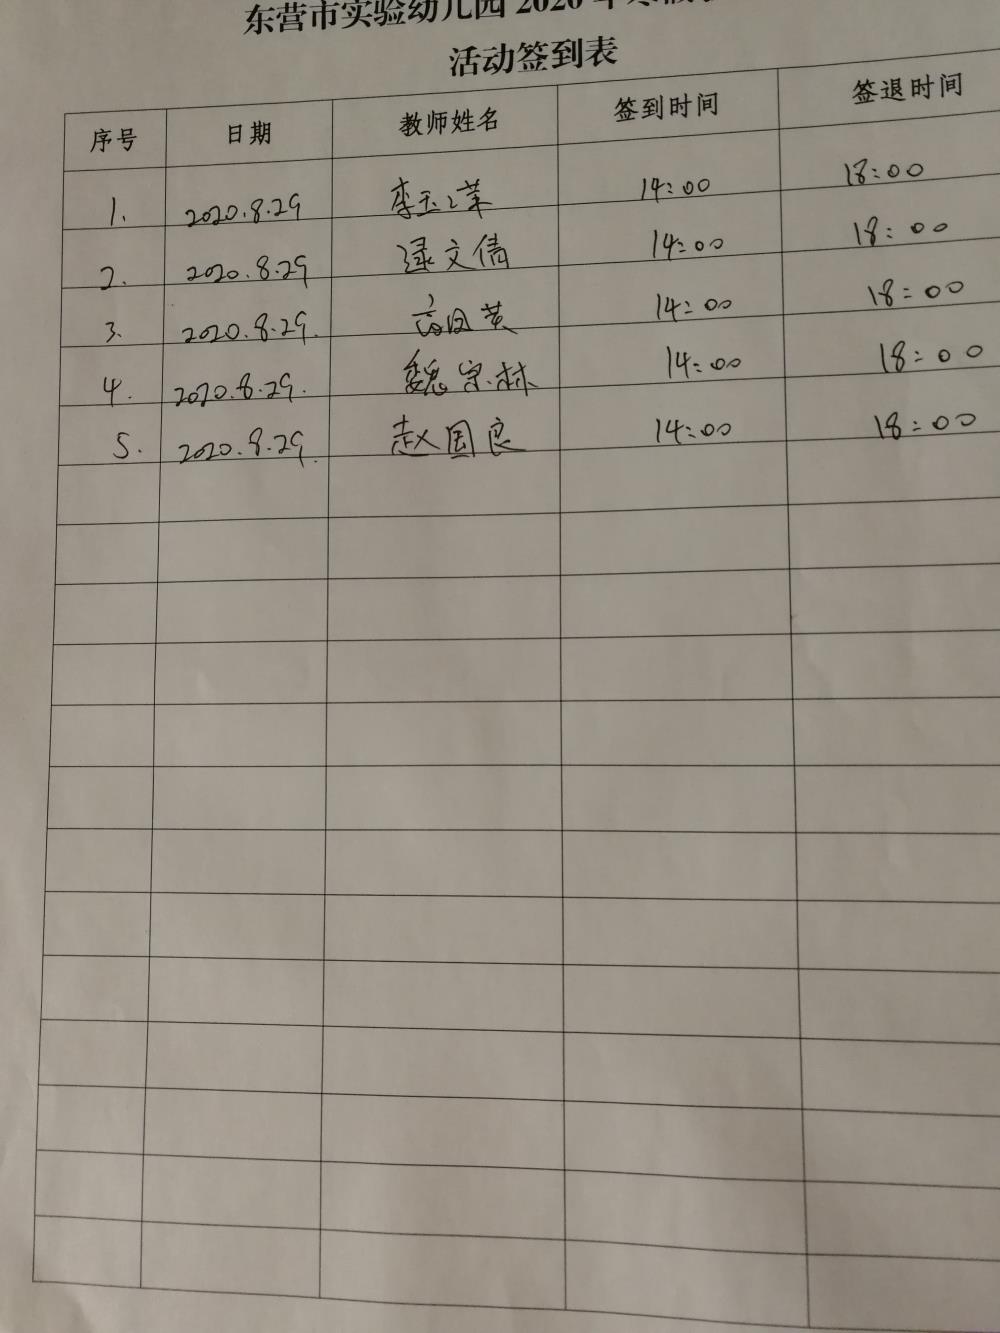 东营市实验幼儿园 2020 年寒假
活动签到表
序号 日期 教师姓名 签到时间 签退时间
1. 2020.8.29 李玉荣 14:00 18:00
2. 2020.8.29 逯文倩 14:00 18:00
3. 2020.8.29. 高因英 14:00 18:00
4. 2020.8.29. 魏宗林 14:00 18:00
5. 2020.8.29. 赵国良 14:00 18:00